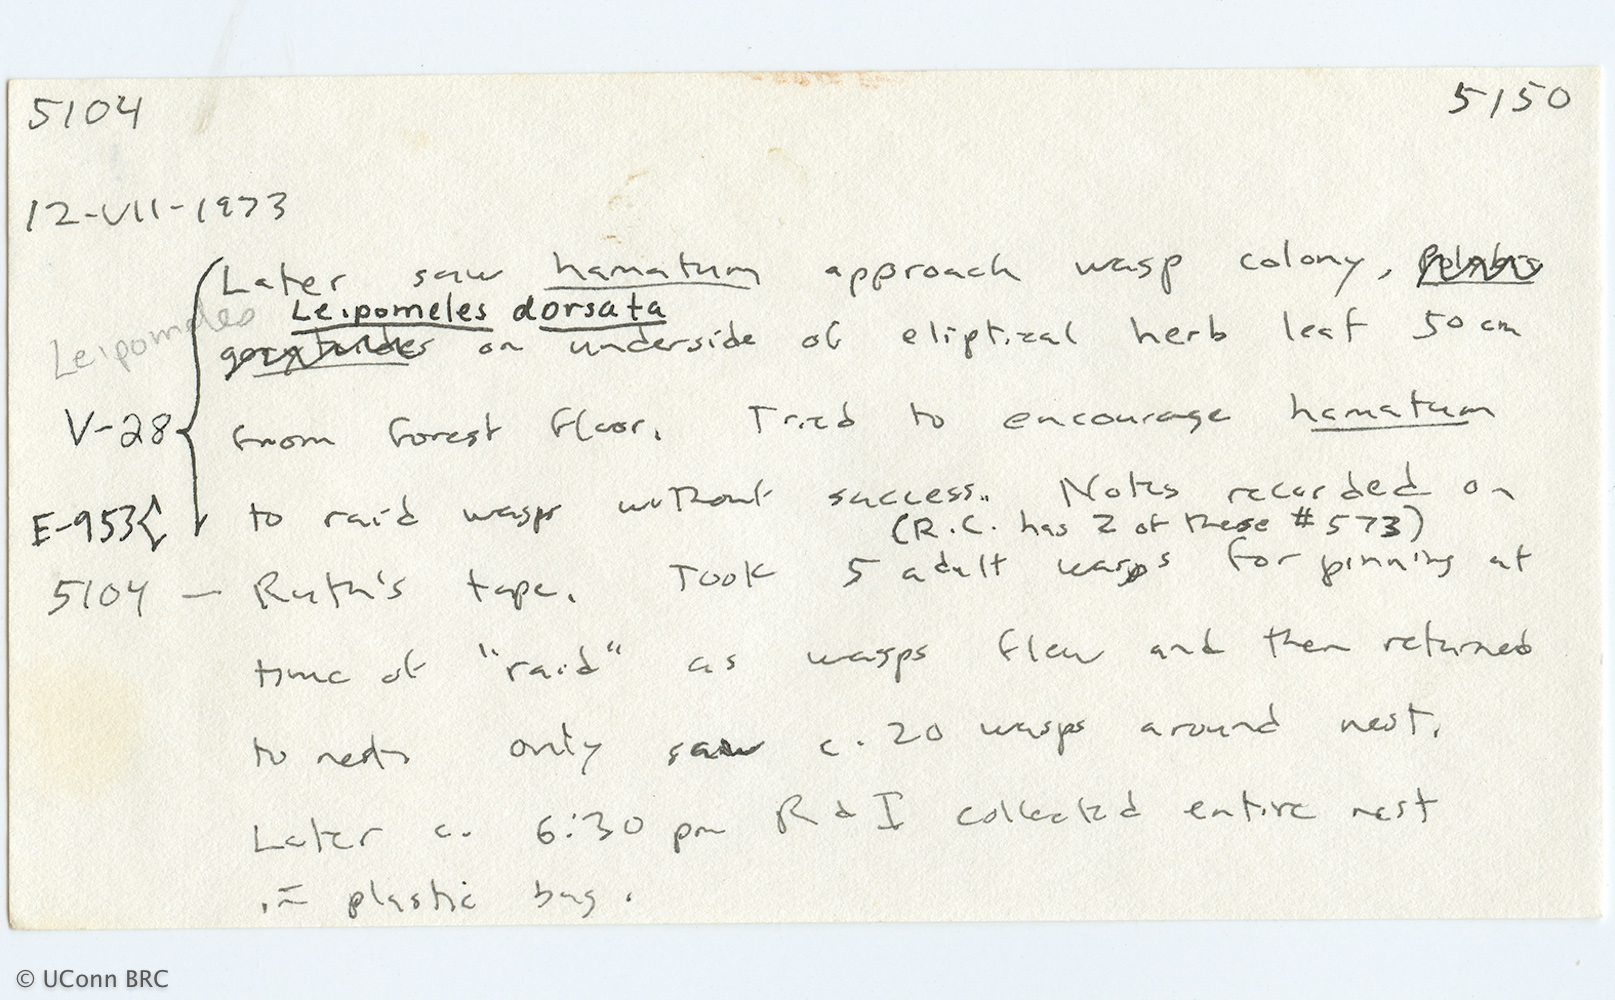 5104 5150
12-VII-1973
Later saw hamatum approach wasp colony,
Leipomeles dorsata
Leipomeles
on underside of eliptical herb leaf 50 cm
V-28 from forest floor. Tried to encourage hamatum
E-953 to raid wasps without success. Notes recorded on
(R.C. has 2 of these #573)
5104 — Ruth's tape. Took 5 adult wasps for pinning at
time of "raid" as wasps flew and then returned
to nest. only saw c. 20 wasps around nest.
Later c. 6:30 pm R & I collected entire nest
in plastic bag.
© UConn BRC